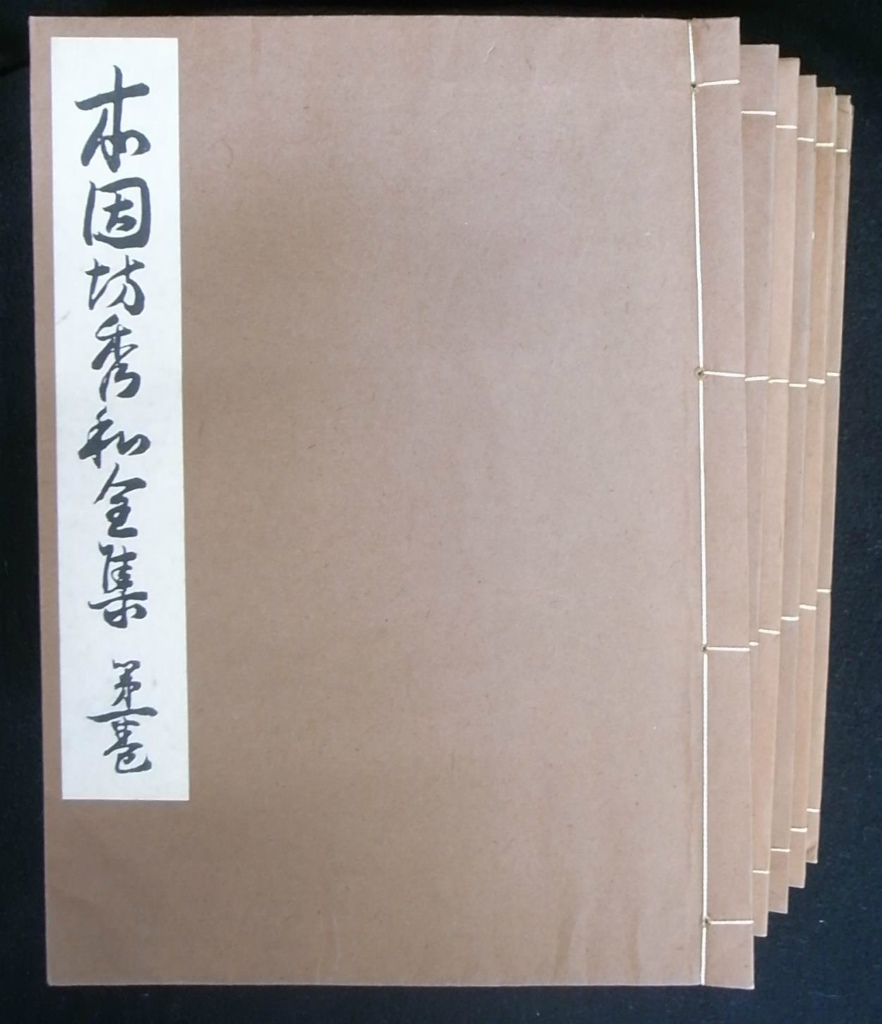 本因坊秀和全集 第一巻